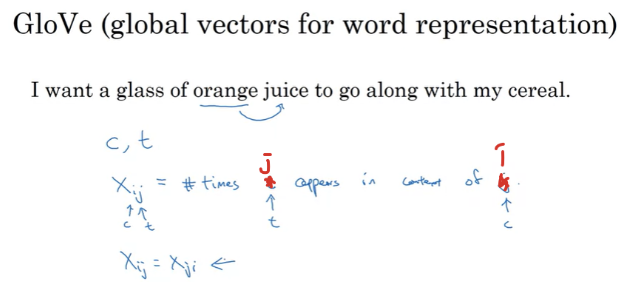 GloVe (global vectors for word representation)
I want a glass of orange juice to go along with my cereal.
c, t
j i
Xij = # times appears in context of
c t t c
Xij = Xji ←